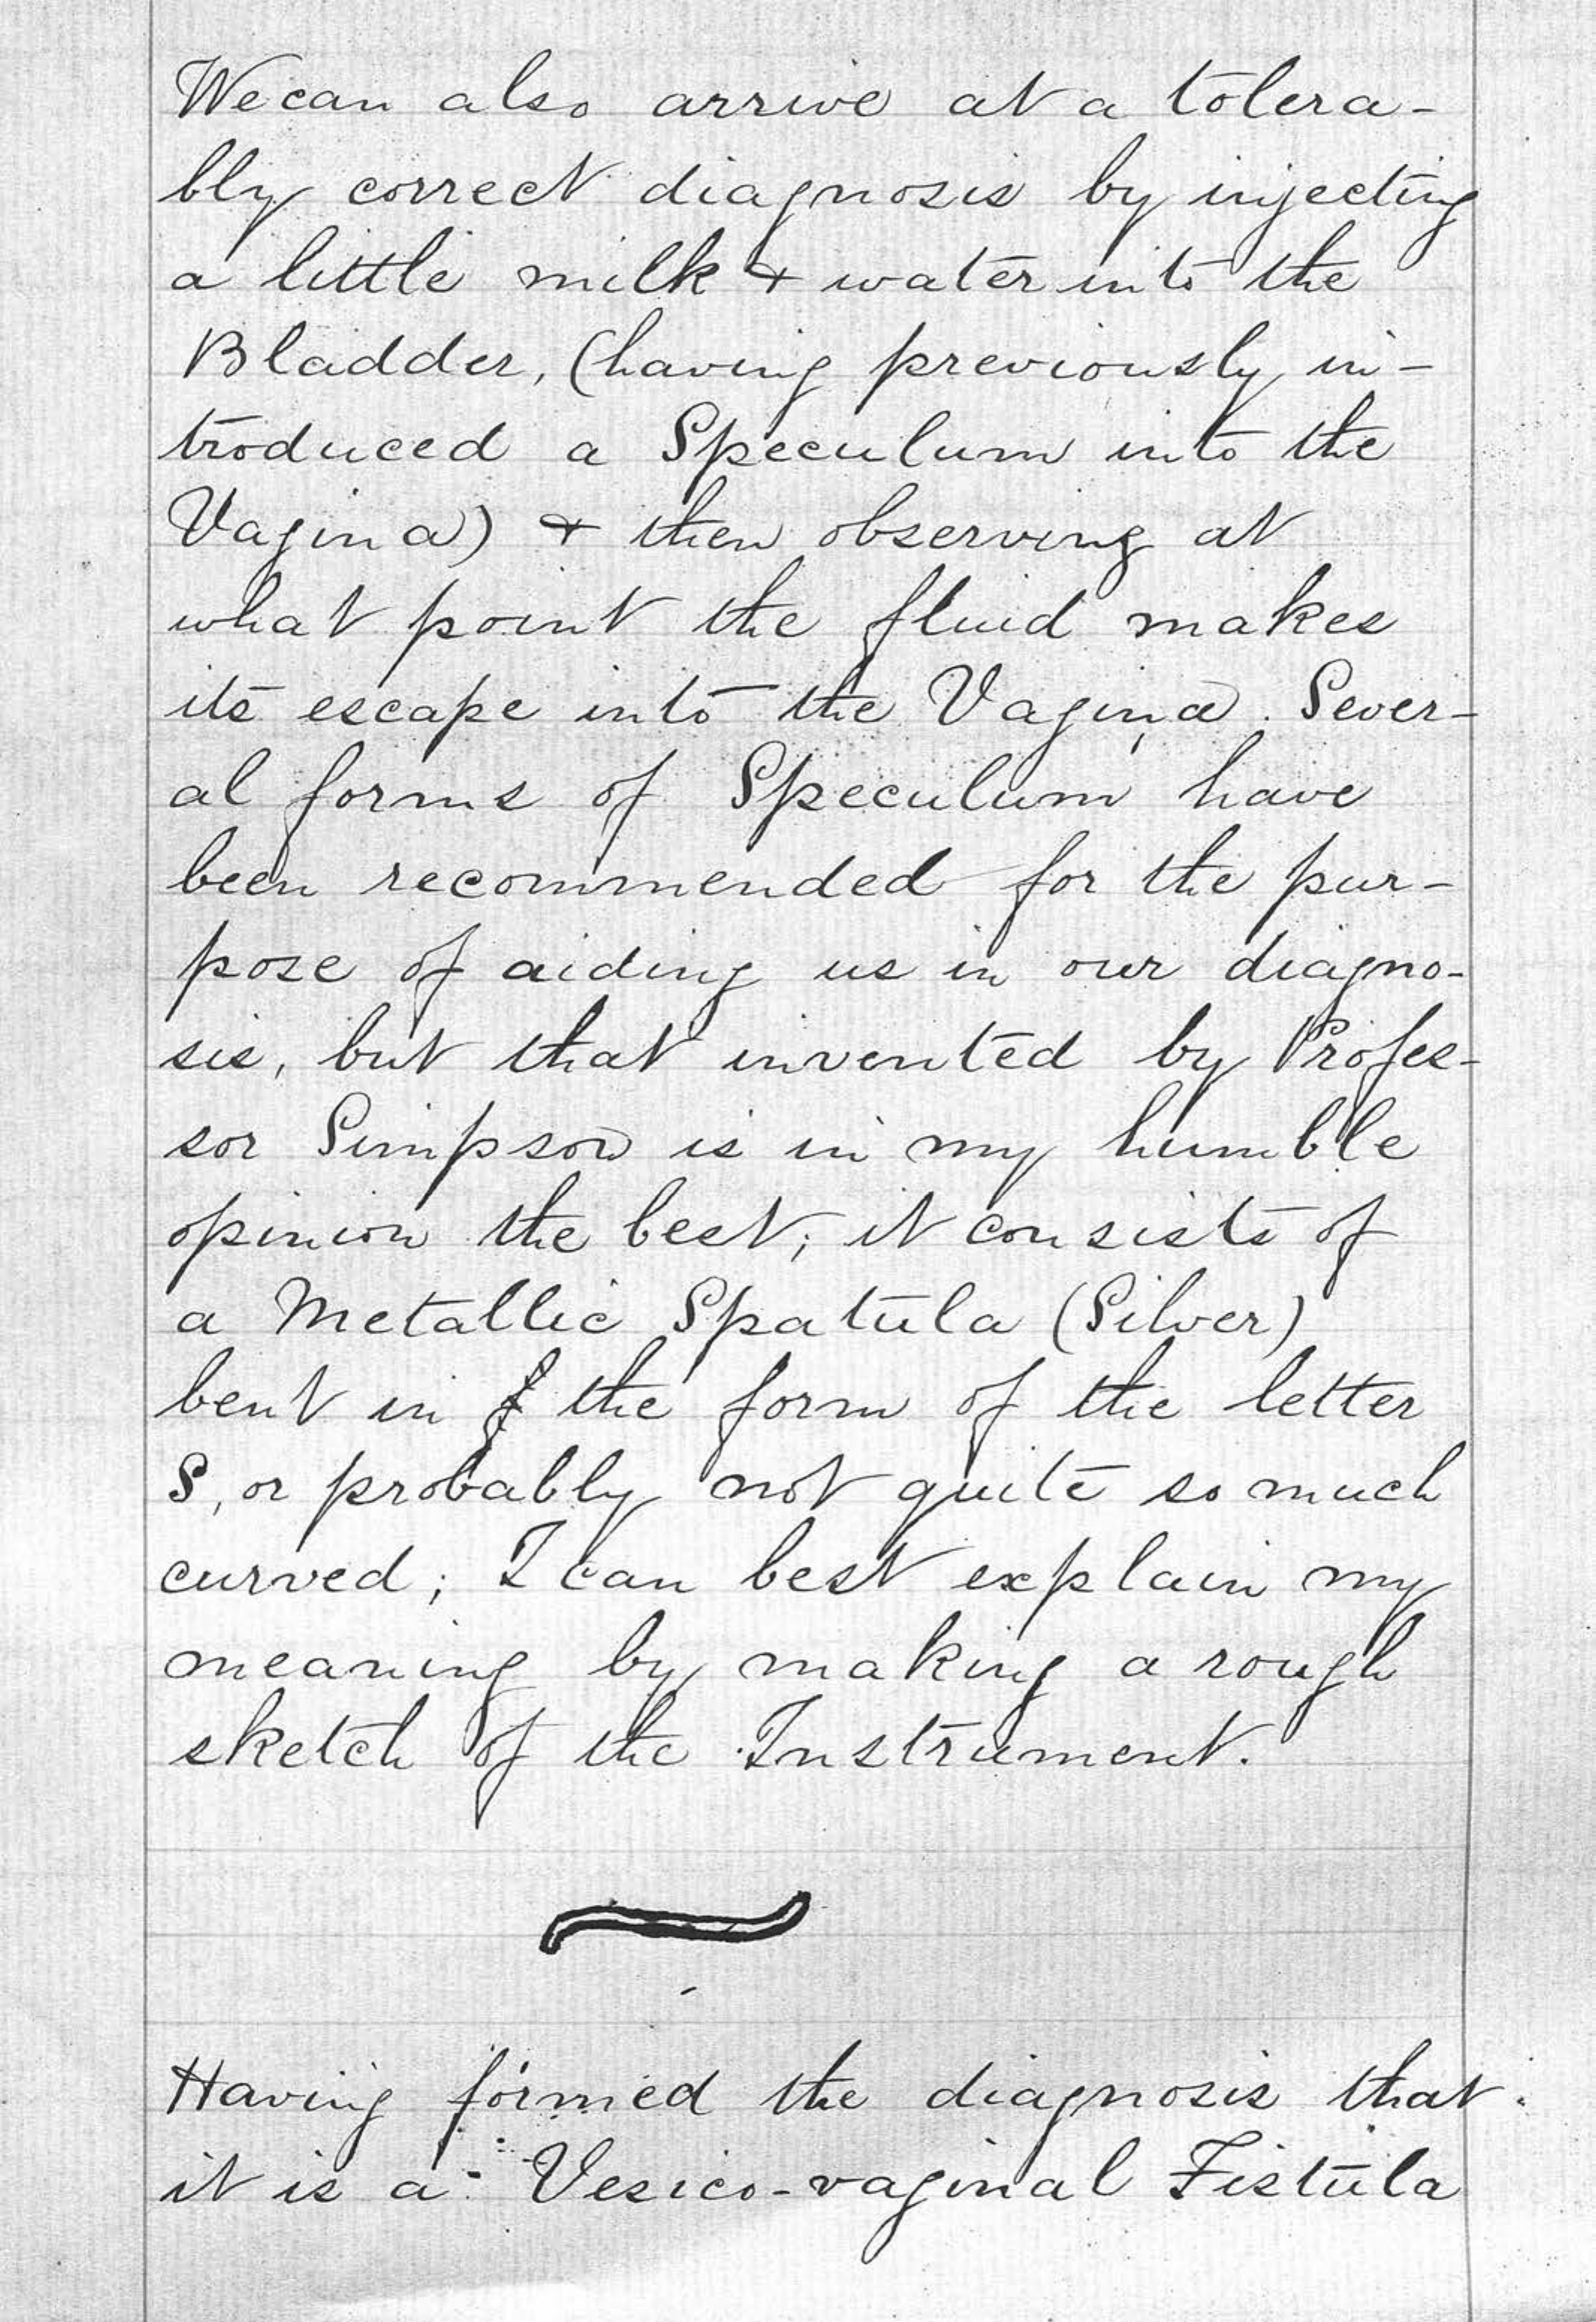 We can also arrive at a tolera-
bly correct diagnosis by injecting
a little milk & water into the
Bladder, (having previously in-
troduced a Speculum into the
Vagina) & then observing at
what point the fluid makes
its escape into the Vagina. Sever-
al forms of Speculum have
been recommended for the pur-
pose of aiding us in our diagno-
sis, but that invented by Profes-
sor Simpson is in my humble
opinion the best; it consists of
a Metallic Spatula (Silver)
bent in the form of the letter
S, or probably not quite so much
curved; I can best explain my
meaning by making a rough
sketch of the Instrument.
Having formed the diagnosis that
it is a Vesico-vaginal Fistula